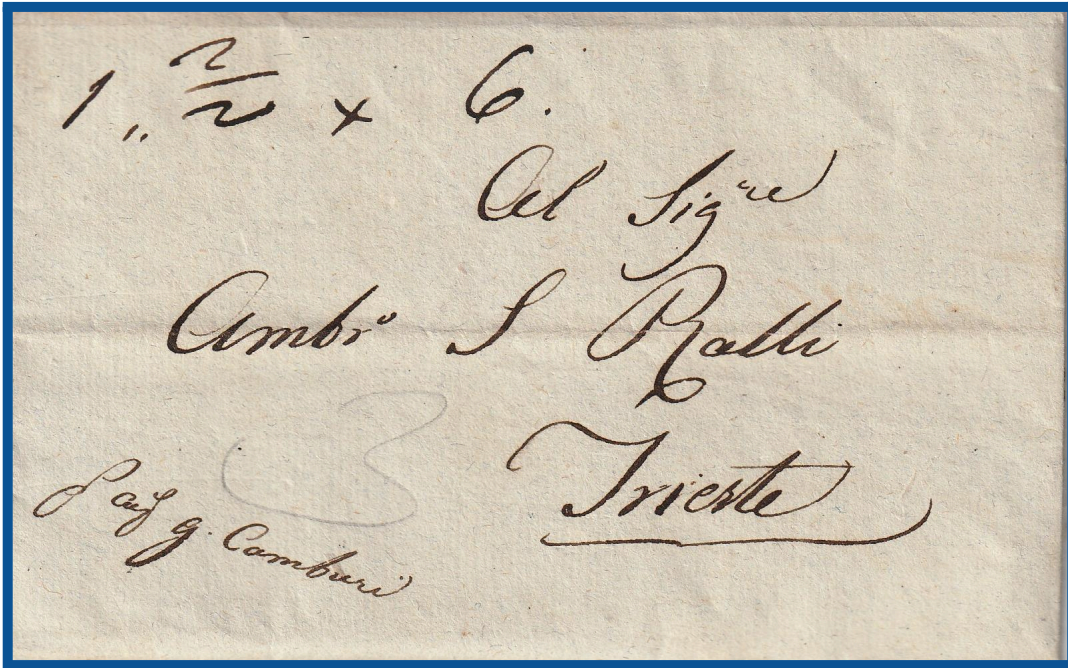 1 „ 2/2 x 6.
Al Sigre
Ambro S Ralli
Trieste
3
g. Camburi